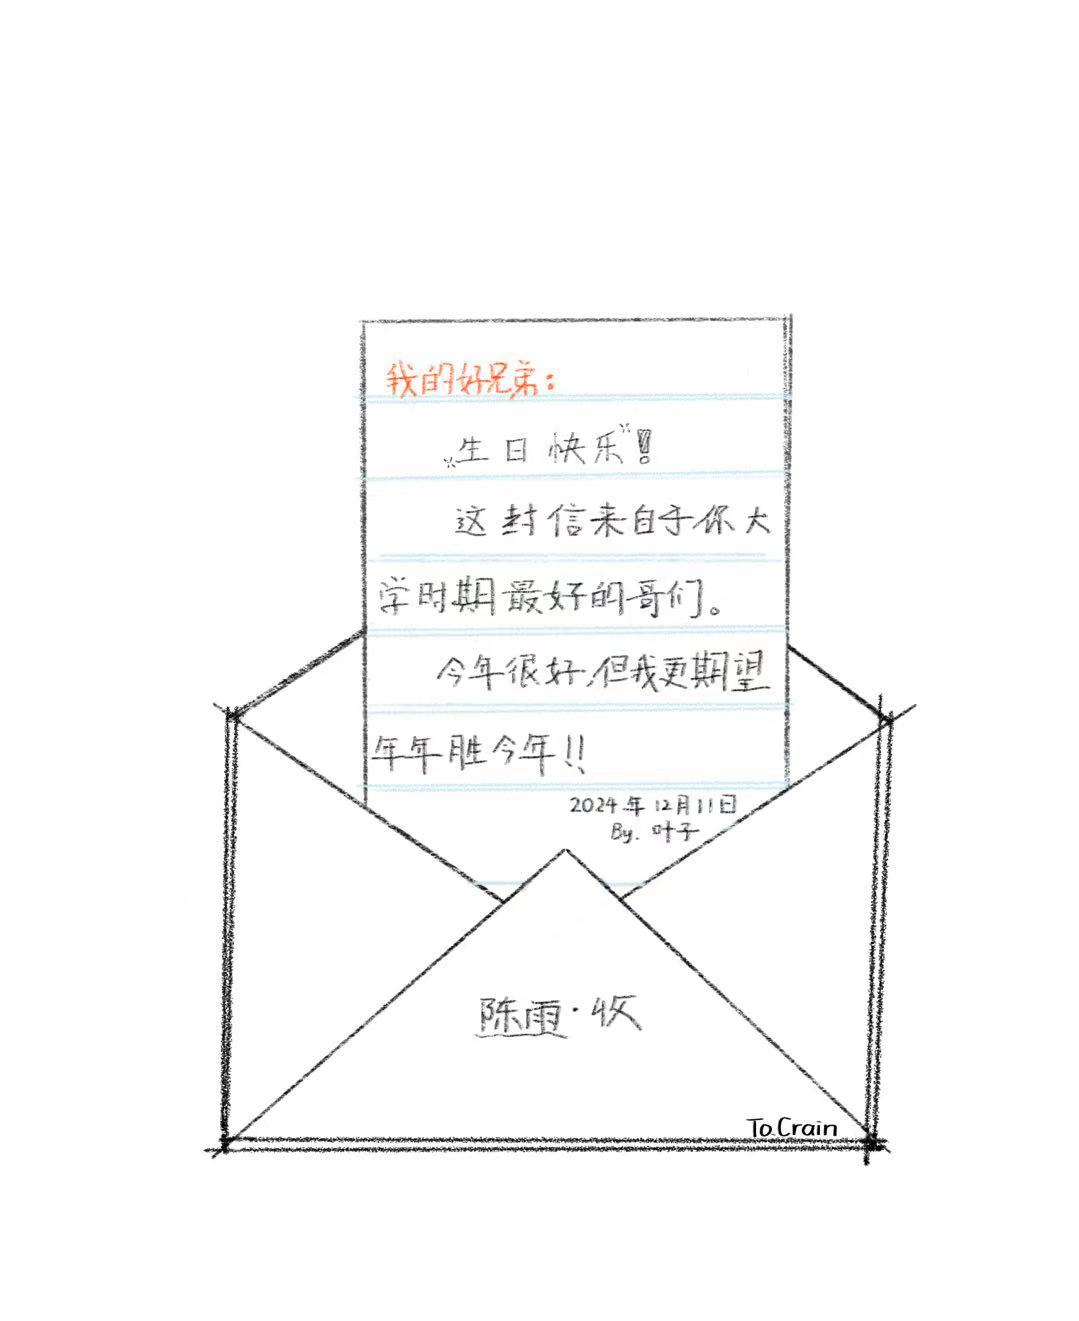 我的好兄弟:
"生日快乐"!
这封信来自于你大
学时期最好的哥们。
今年很好,但我更期望
年年胜今年!!
2024年12月11日
By. 叶子
陈雨·收
To.Crain